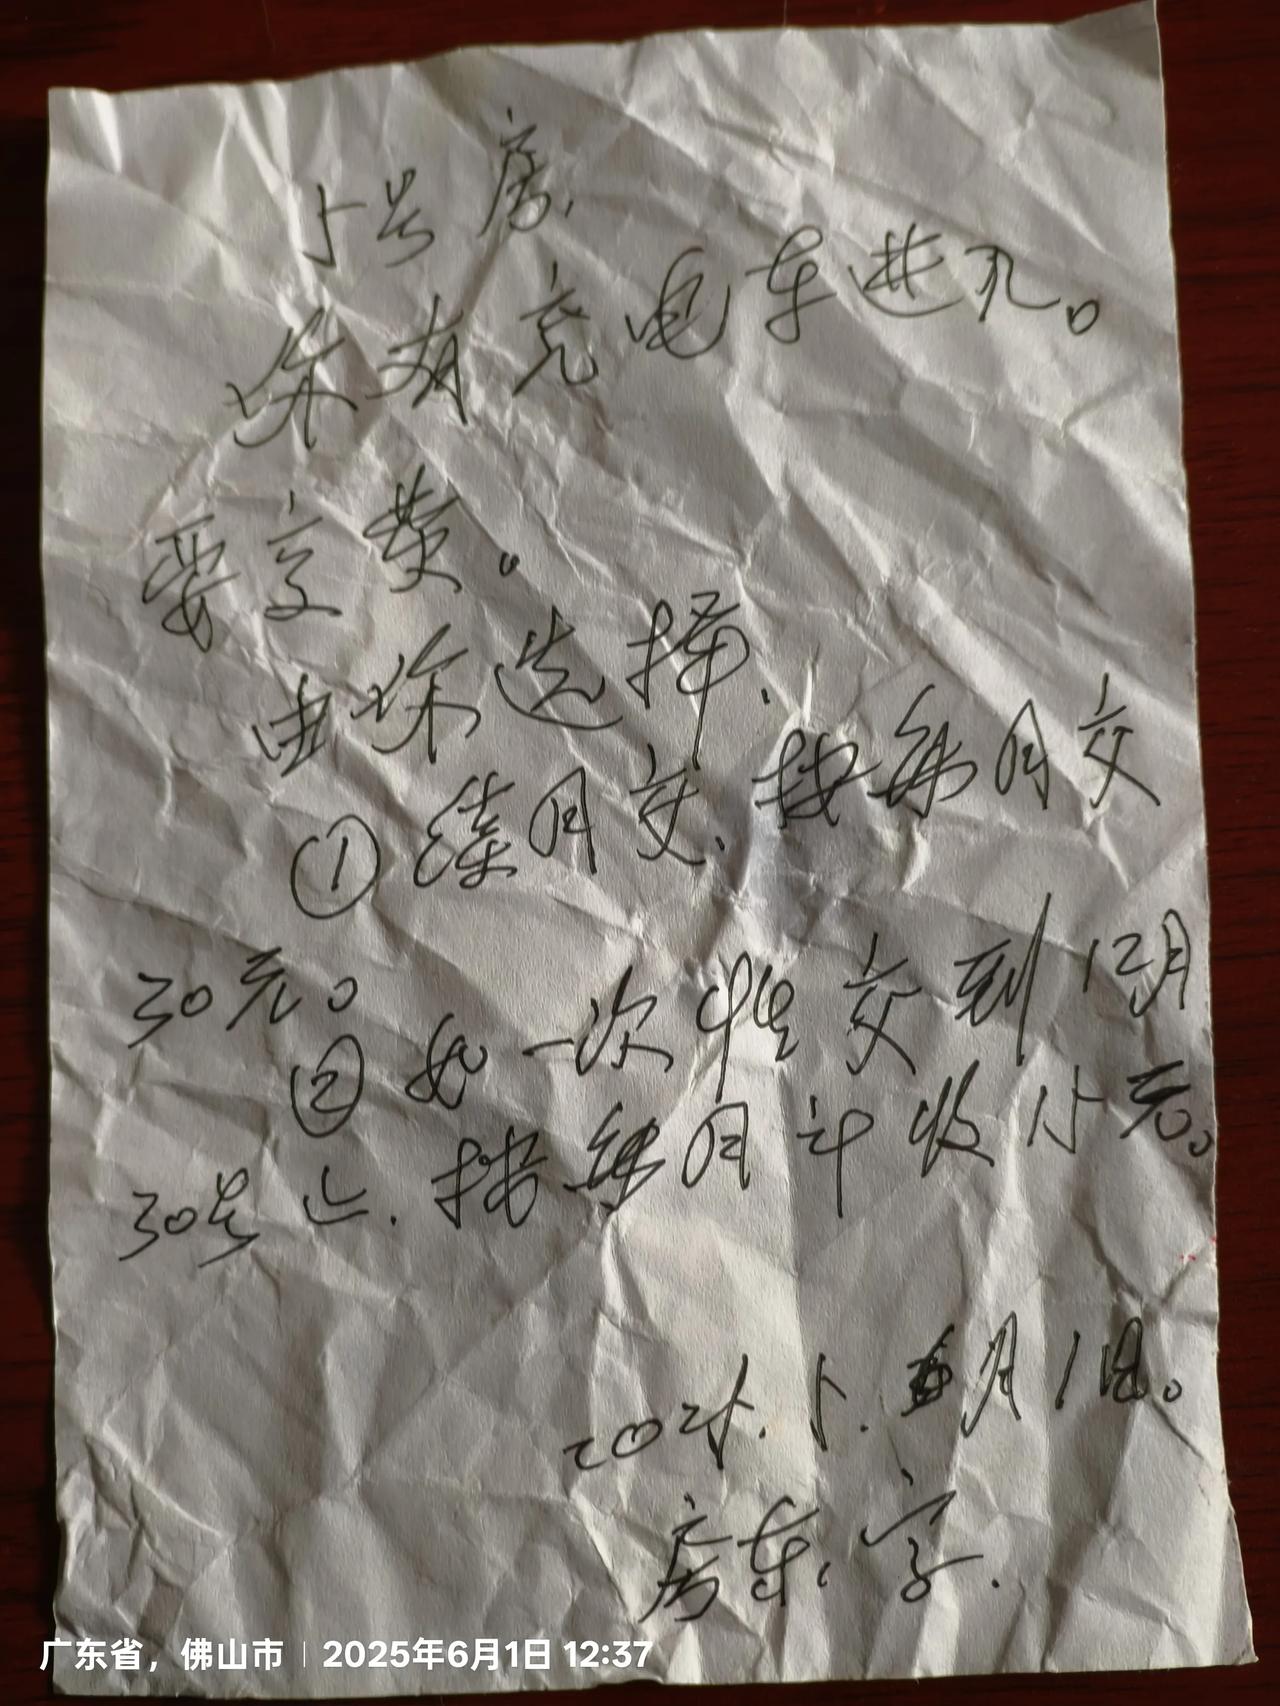 5号房,
你有充电车进孔。
要交费。
由你选择,
①续月交,按每月交
30元。
②如一次性交到12月
30号止.按每月计收15元。
2025.5.月1日。
房东:字.
广东省，佛山市 | 2025年6月1日 12:37